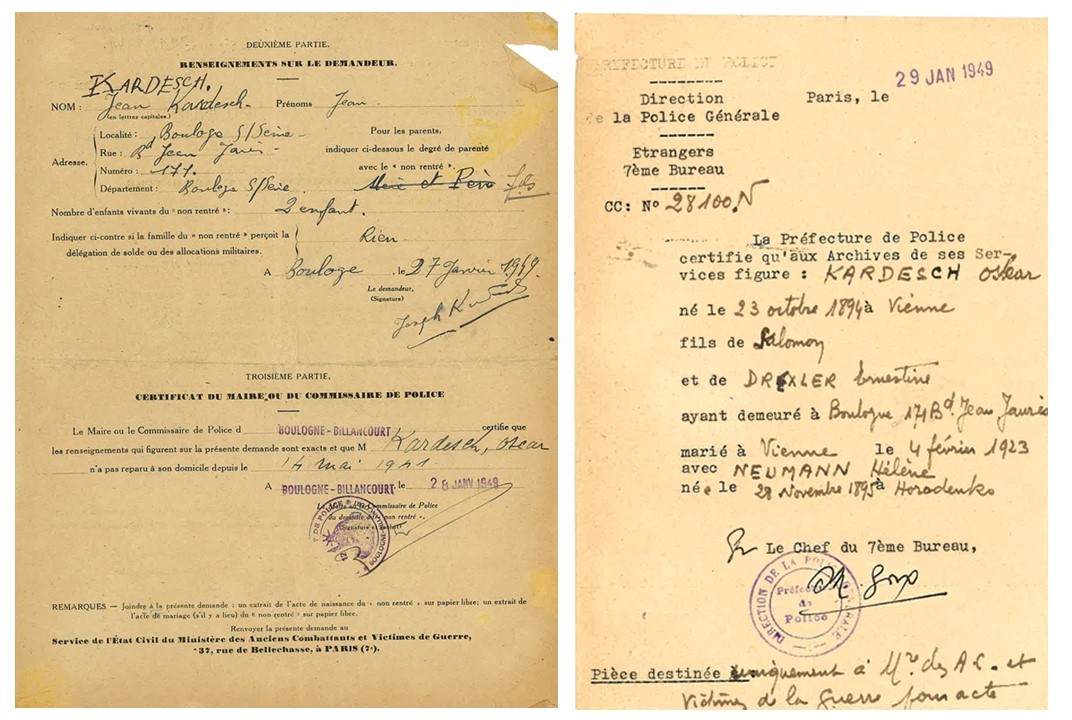 DEUXIÈME PARTIE.
RENSEIGNEMENTS SUR LE DEMANDEUR.
KARDESCH.
NOM : Jean Kardesch - Prénoms Jean -
(en lettres capitales)
Adresse.
Localité : Bouloge S/Seine -
Rue : Bd Jean Jaurès -
Numéro : 171.
Département : Bouloge S/Seine.
Pour les parents,
indiquer ci-dessous le degré de parenté
avec le « non rentré ».
Mère et Père fils
Nombre d'enfants vivants du « non rentré » : 2 enfant.
Indiquer ci-contre si la famille du « non rentré » perçoit la
délégation de solde ou des allocations militaires.
Rien
A Bouloge, le 27 Janvier 1949.
Le demandeur,
(Signature)
Joseph
TROISIÈME PARTIE.
CERTIFICAT DU MAIRE OU DU COMMISSAIRE DE POLICE
Le Maire ou le Commissaire de Police d BOULOGNE-BILLANCOURT certifie que
les renseignements qui figurent sur la présente demande sont exacts et que M Kardesch, oscar
n'a pas reparu à son domicile depuis le 14 mai 1941 -
A BOULOGNE-BILLANCOURT, le 28 JANV 1949
Commissaire de Police
du domicile du « non rentré »,
REMARQUES. — Joindre à la présente demande : un extrait de l'acte de naissance du « non rentré » sur papier libre; un extrait de
l'acte de mariage (s'il y a lieu) du « non rentré » sur papier libre.
Renvoyer la présente demande au
Service de l'État Civil du Ministère des Anciens Combattants et Victimes de Guerre,
37, rue de Bellechasse, à PARIS (7e).
PREFECTURE DE POLICE
29 JAN 1949
Direction
de la Police Générale
Paris, le
Etrangers
7ème Bureau
CC: N° 28100.N
La Préfecture de Police
certifie qu'aux Archives de ses Ser-
vices figure : KARDESCH oskar
né le 23 octobre 1894 à Vienne
fils de Salomon
et de DREXLER Ernestine
ayant demeuré à Boulogne 171 Bd. Jean Jaurès
marié à Vienne le 4 février 1923
avec NEUMANN Hélène
née le 28 Novembre 1895 à Horodenko
Le Chef du 7ème Bureau,
DIRECTION DE LA POLICE GENERALE
Préfecture
de
Police
Pièce destinée uniquement à Mre des A C. et
Victimes de la guerre pour acte